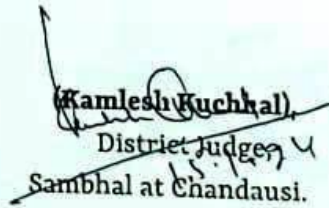 (Kamlesh Kuchhal),
District Judge,
Sambhal at Chandausi.